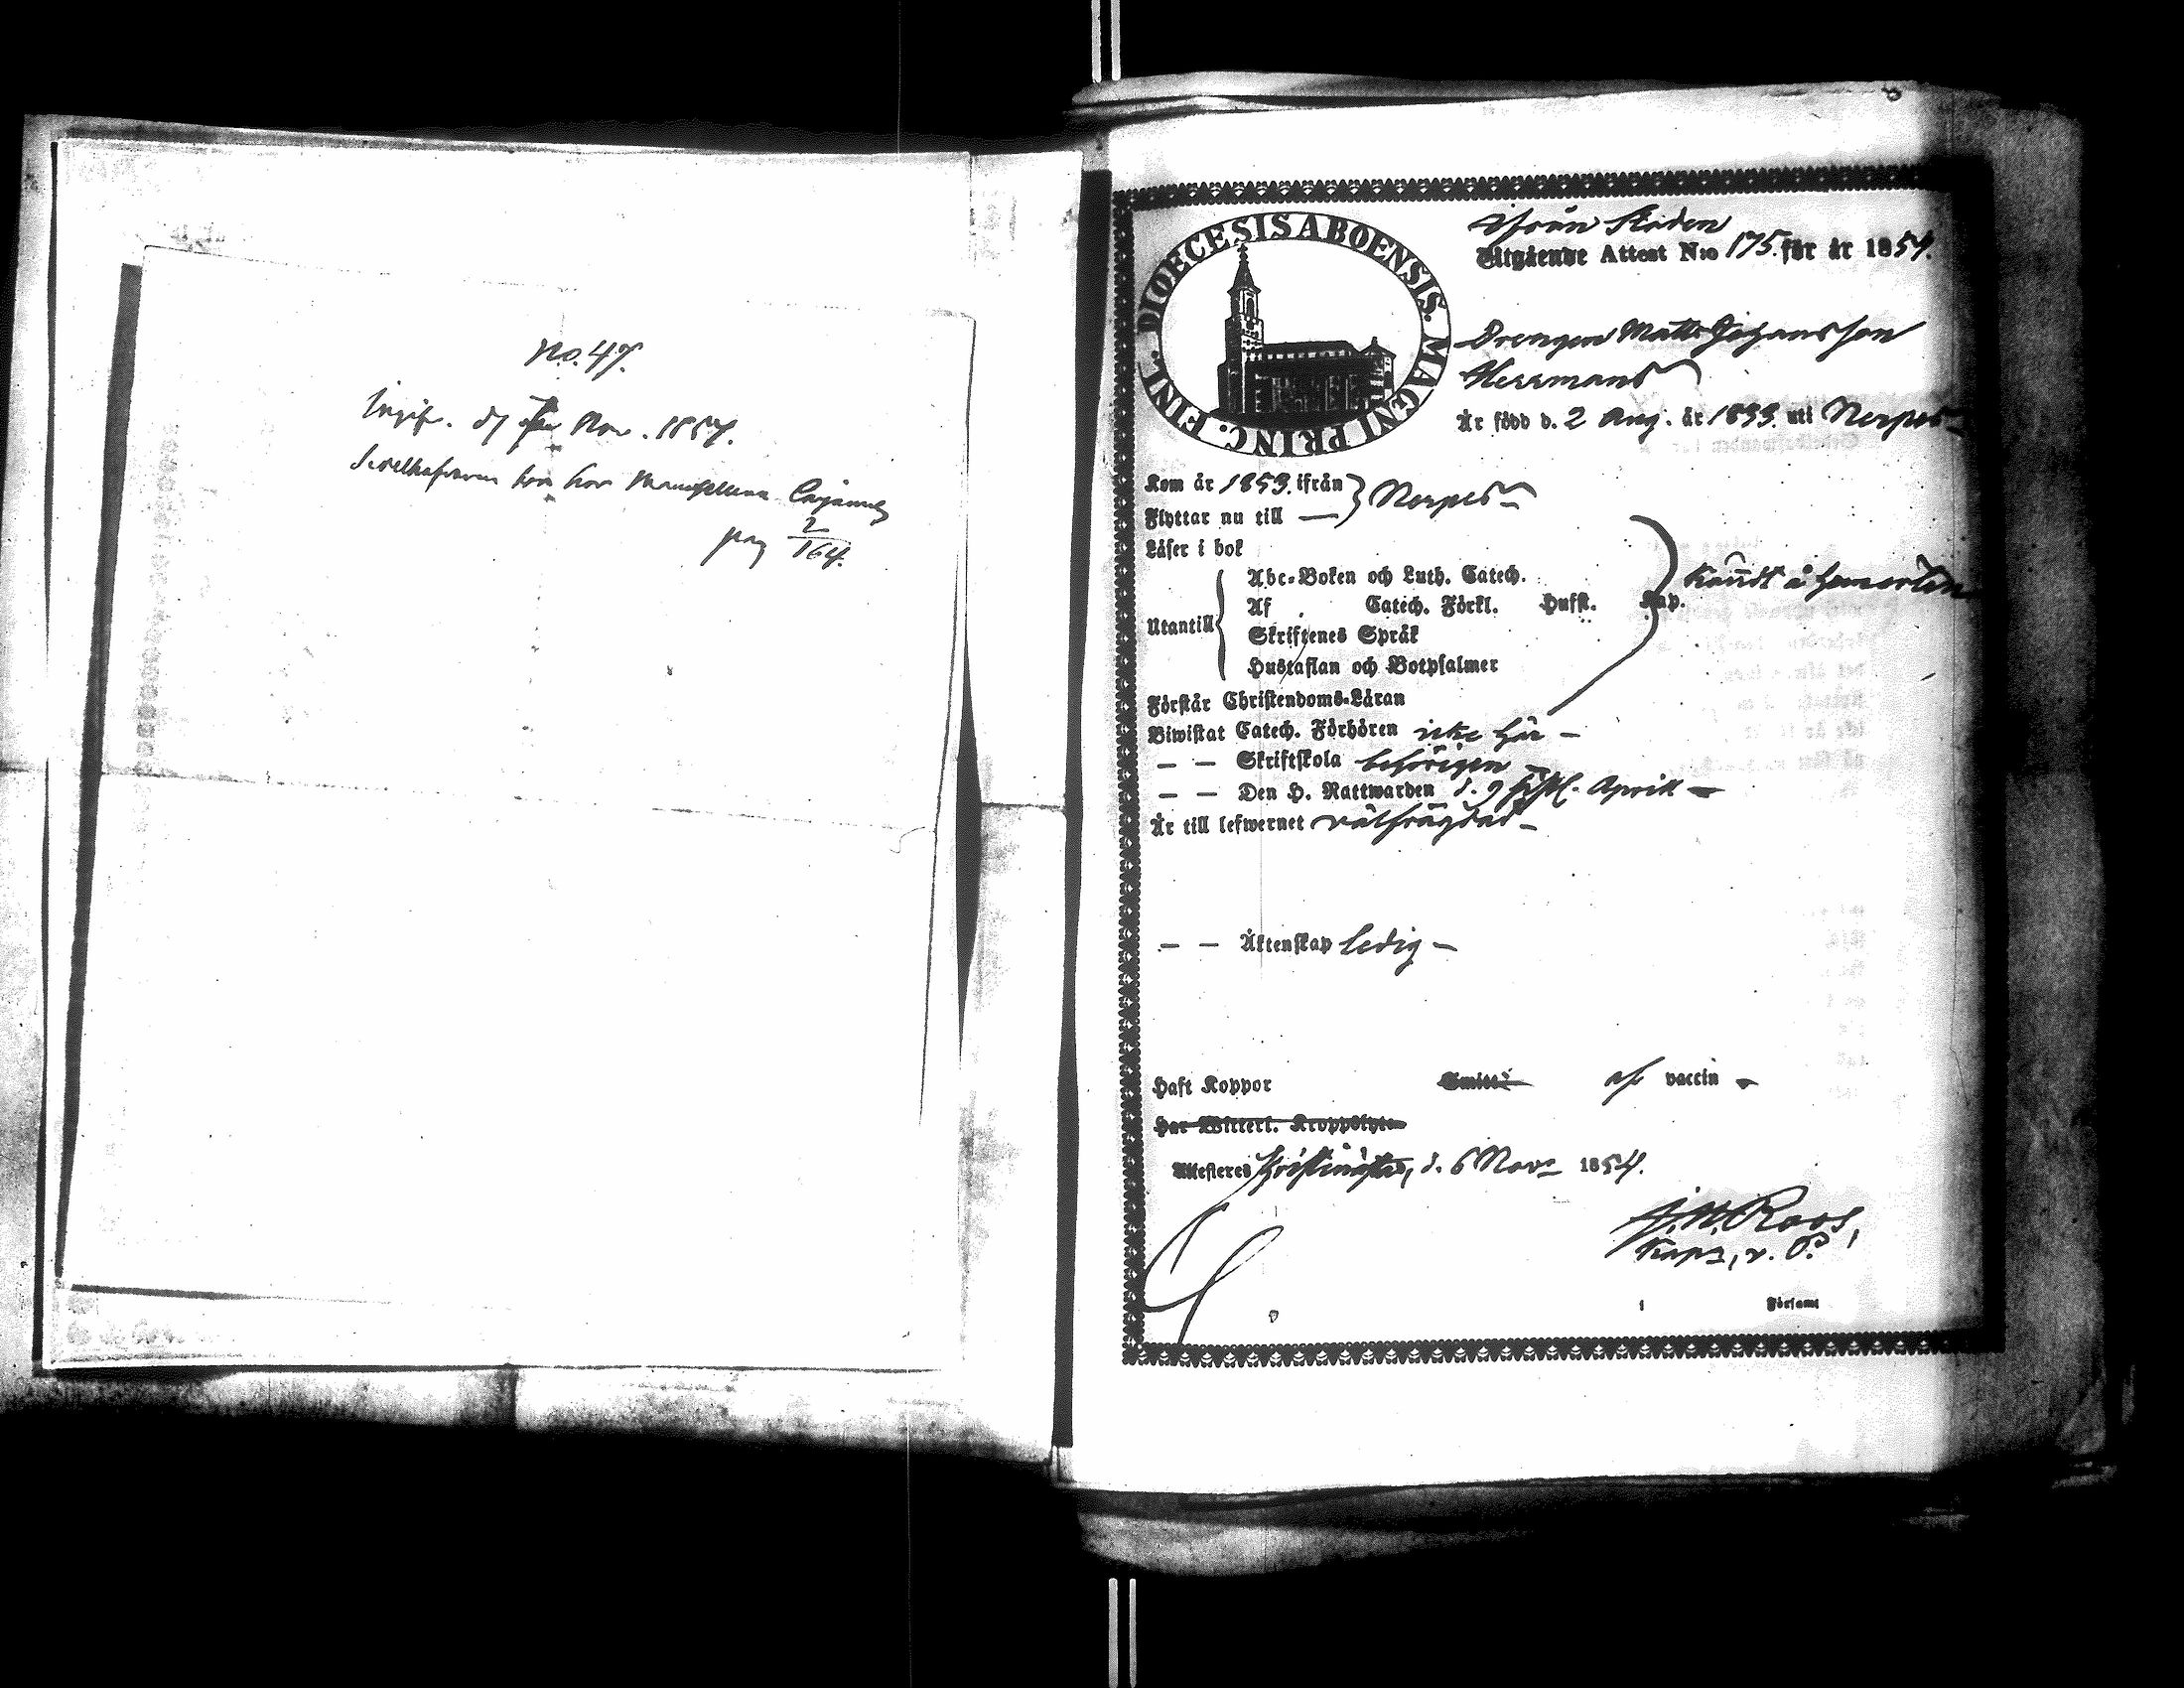 No. 47.
d. 7 Nov. 1854.
bor hos Cajanus
pag 2/164.
DIOECESIS ABOENSIS. MAGNI PRINC. FINL.
ifrån Staden
Utgående Attest N:o 175. för år 1854.
Drengen Matts Johansson
Herrmans
Är född d. 2 Aug. år 1833. uti Nerpes
Kom år 1853. ifrån } Nerpes
Flyttar nu till —
Läser i bok
Abc-Boken och Luth. Catech.
Utantill { Af Catech. Förkl. Husst. Kap.
Skriftenes Språk
Hustaflan och Botpsalmer
Kändt å hemorten
Förstår Christendoms-Läran
Biwistat Catech. Förhören icke här —
— — Skriftskola behörigen —
— — Den H. Nattwarden d. 9 sistl. April —
Är till lefwernet välfrägdad —
— — Äktenskap ledig —
Haft Koppor Smitt. af vaccin —
Har Witterl. Kroppslyte
Attesteras Christinestad, d. 6 Nov. 1854.
Roos,
Kapn, v. P.
i Församl